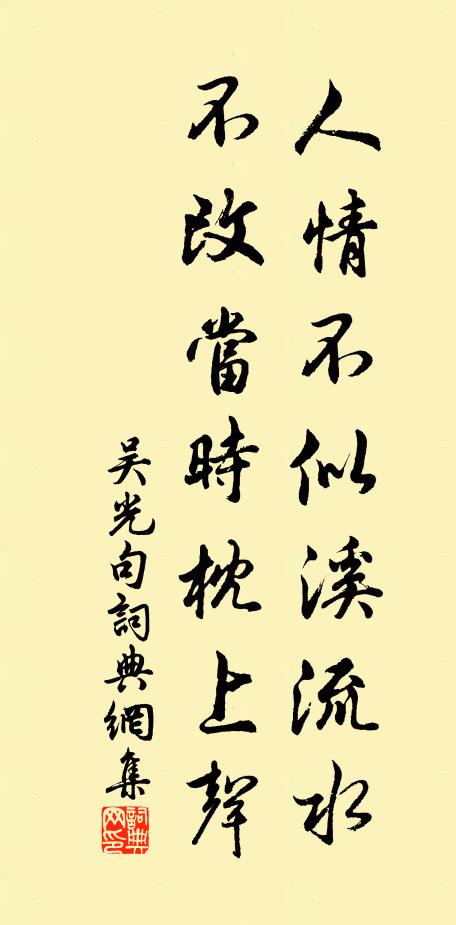 人情不似溪流水
不改當時枕上聲
吴光句詞典網集
詞典網印